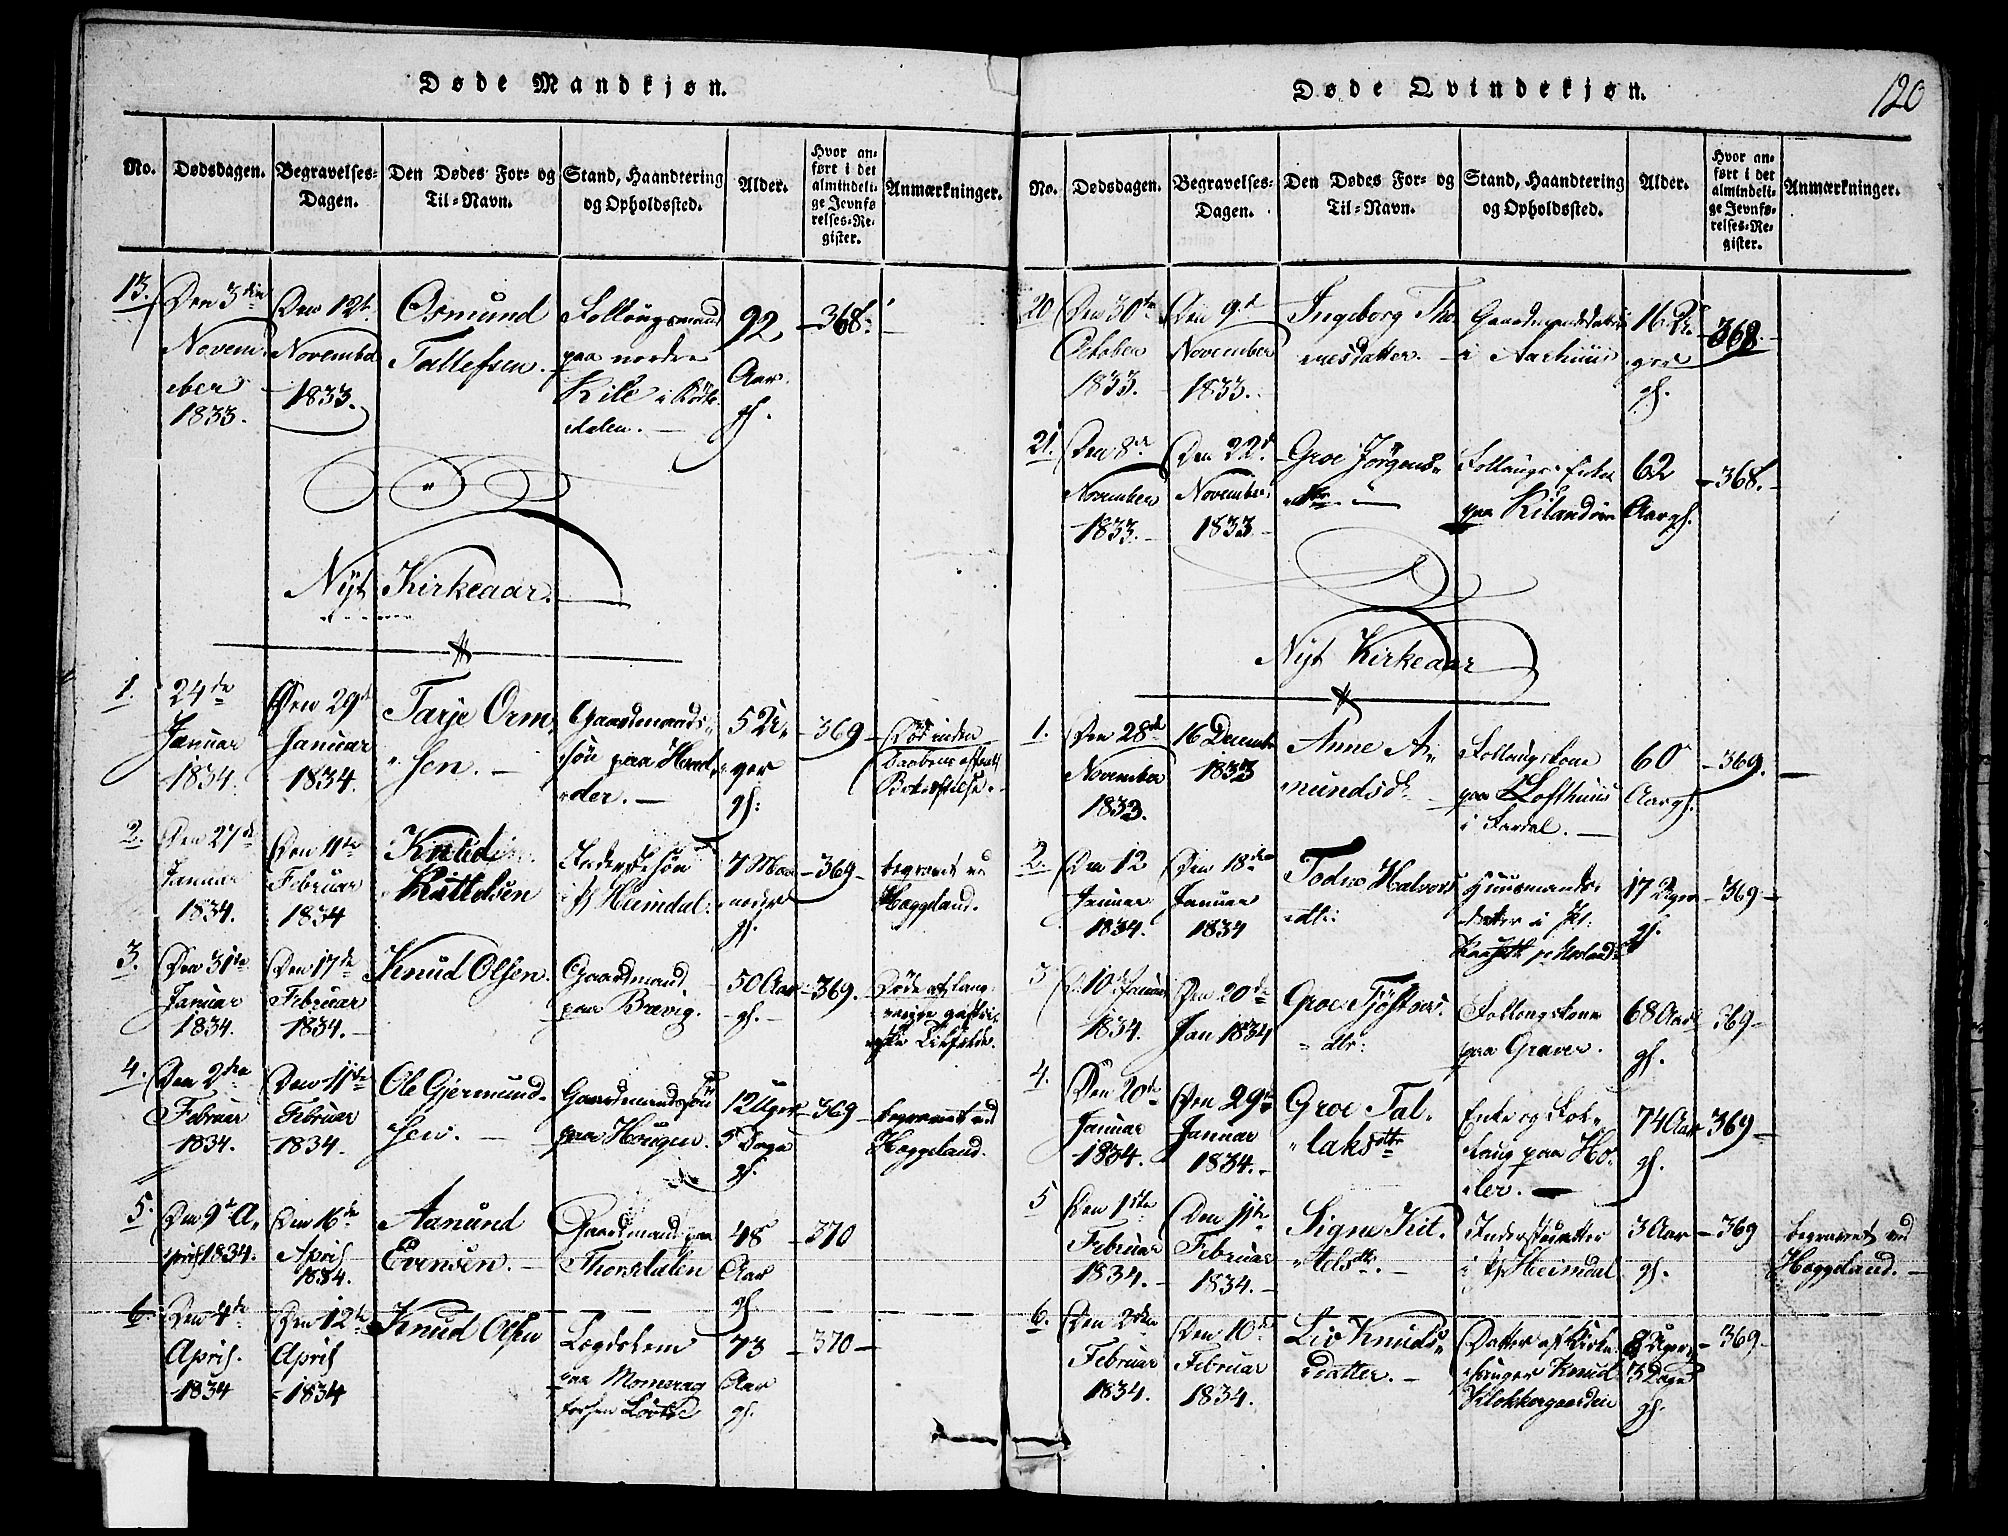 Døde Mandkjøn.
No.
Dødsdagen.
Begravelses-
Dagen.
Den Dødes For- og
Til-Navn.
Stand, Haandtering
og Opholdssted.
Alder.
Hvor an-
ført i det
almindeli-
ge Jevnfø-
relses-Re-
gister.
Anmærkninger.
13.
Den 3die
Novem-
ber
1833.
Den 12te
November
1833.
Osmund
Tallefsen.
paa nordre
Kile i
dalen.
92
Aar.
gl.
368.
Nÿt Kirkeaar.
1.
24de
Januar
1834.
Den 29de
Januar
1834.
Tarje Orm-
sen.
Gaardmands-
søn paa
der.
5 U-
ger
gl:
369
Død inden
Daabens
2.
Den 27de
Januar
1834.
Den 11te
Februar
1834
Knud
Kittelsen
Inderstesøn
Heimdal.
7 Maa-
neder
gl.
369
begravet ved
Haggeland.
3.
Den 31te
Januar
1834.
Den 17de
Februar
1834.
Knud Olsen.
Gaardmand
paa Brævig.
50 Aar
gl.
369.
Døde af lang-
varige gastri-
ske
4.
Den 2den
Februar
1834.
Den 11te
Februar
1834.
Ole Gjermund-
sen.
Gaardmandssøn
paa Hougen.
12 Uger
5 Dage
gl.
369
begravet ved
Haggeland.
5.
Den 9de A-
pril 1834.
Den 16de
April
1834.
Aanund
Evensen.
Gaardmand paa
Thorsdalen
48
Aar
gl.
370
6.
Den 4de
April.
1834
Den 12te
April
1834
Knud Olsen
Lægdslem
paa Momrag
73
Aar
gl.
370
Døde Qvindekjøn.
120
No.
Dødsdagen.
Begravelses-
Dagen.
Den Dødes For- og
Til-Navn.
Stand, Haandtering
og Opholdssted.
Alder.
Hvor an-
ført i det
almindeli-
ge Jevnfø-
relses-Re-
gister.
Anmærkninger.
20
Den 30te
October
1833.
Den 9de
November
1833.
Ingeborg Tho-
resdatter.
Gaardmandsdatter
i Aarhuus
16 U-
ger
gl.
368
21.
Den 8de
November
1833.
Den 22de
November
1833
Groe Jørgens-
dtr
Follaugs-Enke
paa Kilandsøe
62
Aar gl.
368.
Nÿt Kirkeaar
1.
Den 28de
November
1833.
16 December
1833
Anne A-
mundsd.
Follaugskone
paa Lofthuus
i Fardal.
60
Aar gl.
369.
2.
Den 12
Januar
1834.
Den 18de
Januar
1834
Todne Halvors-
dtr:
Huusmands-
datter i Pl.
17 Uger
gl.
369
3
D. 10de Januar
1834.
Den 20de
Jan 1834
Groe Tjøstolvs-
dtr:
Follougskone
paa Graver.
68 Aar
gl.
369
4.
Den 20de
Januar
1834.
Den 29de
Januar
1834.
Groe Tal-
laksdtr
Enke og Fol-
laug paa Ho-
ler.
74 Aar
gl.
369
5
Den 1ste
Februar
1834.
Den 11te
Februar
1834.
Signe Kit-
telsdtr.
Inderstdatter
i Pl Heimdal
3 Aar
gl.
369
begravet ved
Haggeland.
6.
Den 2den
Februar
1834.
Den 10de
Februar
1834.
Liv Knuds-
datter.
Datter af Kirke-
sanger Knud
Klokkergaarden
8 Uger
3 Dage
gl.
369